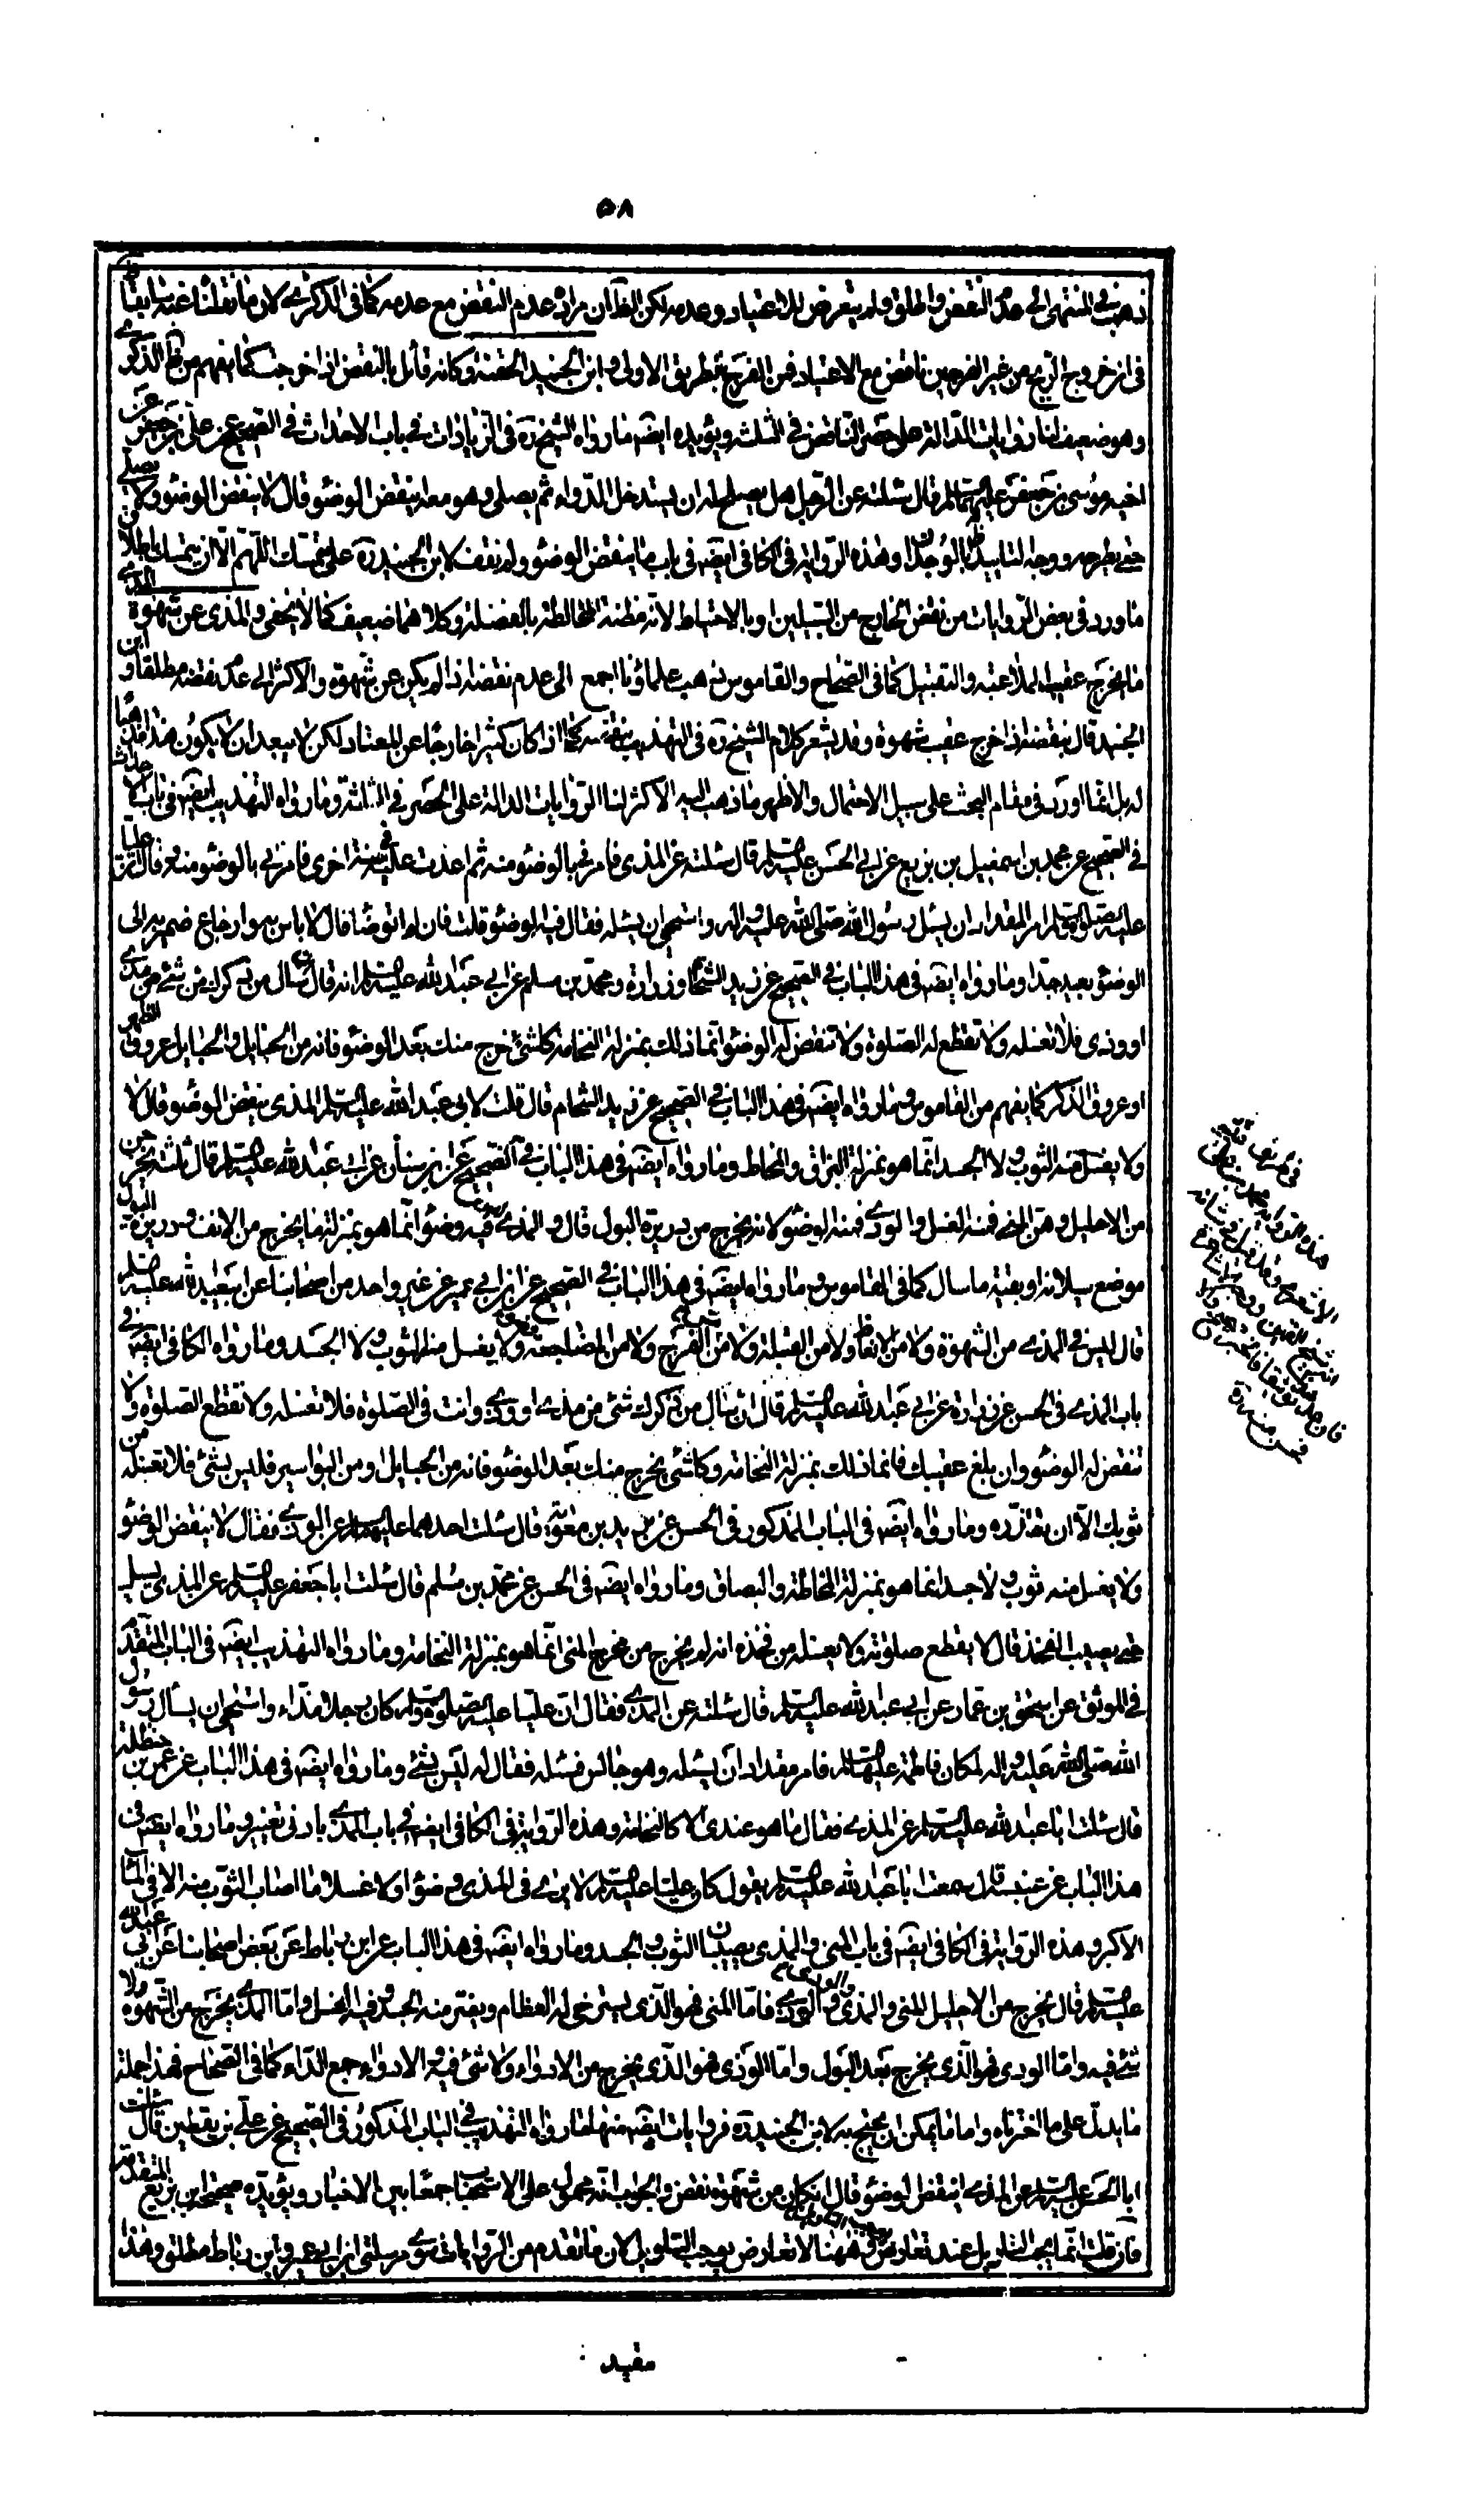 ٥٨
ذهب في المنتهى الى عدم النقض واطلق ولم يتعرض للاعتياد وعدمه لكن الظ ان مراده عدم النقض مع عدمه كما في الذكرى لان ما نقلنا عنه سابقا
في ان خروج الريح من غير الفرجين ناقض مع الاعتياد فمن الفرج بطريق الاولى و ابن الجنيد الحقنة وكانه قائل بالنقض اذا خرجت كما يفهم من ظ الذكرى
وهو ضعيف لما روايات الدالة على حصر الناقض في الثلث ويؤيده ايضه ما رواه الشيخ ره في الزيادات في باب الاحداث في الصحيح عن علي بن جعفر عن
اخيه موسى بن جعفر عليهما السلم قال سئلته عن الرجل هل يصلح له ان يستدخل الدواء ثم يصلى وهو معه اينقض الوضوء قال لا ينقض الوضوء ولا يصلى
حتى يطرحه ووجه التاييد الوجدان وهذه الرواية في الكافي ايضه في باب ما ينقض الوضوء ولم نقف لابن الجنيد ره على متمسك اللهم الا ان يتمسك باطلاق
ما ورد في بعض الروايات من نقض الخارج من السبيلين او بالاحتياط لانه مظنة المخالطة بالفضلة وكلاهما ضعيف كما لا يخفى والمذى عن شهوة المذى
ما يخرج عقيب الملاعبة والتقبيل كما في الصحاح والقاموس ذهب علماؤنا اجمع الى عدم نقضه اذا لم يكن عن شهوة والاكثر الى عدم نقضه مطلقا و ابن
الجنيد قال بنقضه اذا خرج عقيب شهوة وقد يشعر كلام الشيخ ره في التهذيب بنقضه اذا كان كثيرا خارجا عن المعتاد لكن لا يبعد ان لا يكون هذا مذهبا
له بل انما اورده في مقام البحث على سبيل الاحتمال والاظهر ما ذهب اليه الاكثر لنا الروايات الدالة على الحصر في الثلثة وما رواه التهذيب ايضه في باب الاحداث
في الصحيح عن محمد بن اسمعيل بن بزيع عن ابي الحسن عليه السلم قال سئلته عن المذى فامرني بالوضوء منه ثم اعدت عليه في سنة اخرى فامرني بالوضوء منه وقال ان عليا
عليه السلم امر المقداد ان يسئل رسول الله صلى الله عليه واله واستحيى ان يسئله فقال فيه الوضوء قلت فان لم اتوضأ قال لا باس به وارجاع ضميره الى
الوضوء بعيد جدا وما رواه ايضه في هذا الباب في الصحيح عن زيد الشحام وزرارة ومحمد بن مسلم عن ابي عبد الله عليه السلم انه قال ان سال من ذكرك شئ من مذى
او وذى فلا تغسله ولا تقطع له الصلوة ولا تنقض له الوضوء انما ذلك بمنزلة النخامة كل شئ خرج منك بعد الوضوء فانه من الحبايل والحبايل عروق الظهر
او عروق الذكر كما يفهم من القاموس وما رواه ايضه في هذا الباب في الصحيح عن زيد الشحام قال قلت لابي عبد الله عليه السلم المذى ينقض الوضوء قال لا
ولا يغسل منه الثوب ولا الجسد انما هو بمنزلة البزاق والمخاط وما رواه ايضه في هذا الباب في الصحيح عن ابن سنان عن ابي عبد الله عليه السلم قال ثلث يخرجن
من الاحليل وهن المنى فمنه الغسل والودى فمنه الوضوء لانه يخرج من دريرة البول قال والمذى ليس فيه وضوء انما هو بمنزلة ما يخرج من الانف ودريرة البول
موضع سيلانه او بقية ما سال كما في القاموس وما رواه ايضه في هذا الباب في الصحيح عن ابن ابي عمير عن غير واحد من اصحابنا عن ابي عبد الله عليه السلم
قال ليس في المذى من الشهوة ولا من الانعاظ ولا من القبلة ولا من مس الفرج ولا من المضاجعة وضوء ولا يغسل منه الثوب ولا الجسد وما رواه الكافي ايضه في
باب المذى في الحسن عن زرارة عن ابي عبد الله عليه السلم قال ان سال من ذكرك شئ من مذى او ودى وانت في الصلوة فلا تغسله ولا تقطع الصلوة ولا
تنقض له الوضوء وان بلغ عقبيك فانما ذلك بمنزلة النخامة وكل شئ يخرج منك بعد الوضوء فانه من الحبايل او من البواسير فليس بشئ فلا تغسله من
ثوبك الا ان تقذره وما رواه ايضه في الباب المذكور في الحسن عن بريد بن معوية قال سئلت احدهما عليهما السلم عن المذى فقال لا ينقض الوضوء
ولا يغسل منه ثوب ولا جسد انما هو بمنزلة المخاط والبصاق وما رواه ايضه في الحسن عن محمد بن مسلم قال سئلت ابا جعفر عليه السلم عن المذى يسيل
حتى يصيب الفخذ قال لا يقطع صلوته ولا يغسله من فخذه انه لم يخرج من مخرج المنى انما هو بمنزلة النخامة وما رواه التهذيب ايضه في الباب المتقدم
في الموثق عن اسحق بن عمار عن ابي عبد الله عليه السلم قال سئلته عن المذى فقال ان عليا عليه السلم كان رجلا مذاء واستحيى ان يسأل رسول
الله صلى الله عليه واله لمكان فاطمة عليها السلم فامر مقداد ان يسئله وهو جالس فسئله فقال له ليس بشئ وما رواه ايضه في هذا الباب عن عمر بن حنظلة
قال سئلت ابا عبد الله عليه السلم عن المذى فقال ما هو عندى الا كالنخامة وهذه الرواية في الكافي ايضه في باب المذى بادنى تغيير وما رواه ايضه في
هذا الباب عن عنبسة قال سمعت ابا عبد الله عليه السلم يقول كان علي عليه السلم لا يرى في المذى وضوء ولا غسل ما اصاب الثوب منه الا في الماء
الاكبر وهذه الرواية في الكافي ايضه في باب المنى والمذى يصيبان الثوب والجسد وما رواه ايضه في هذا الباب عن ابن رباط عن بعض اصحابنا عن ابي عبد الله
عليه السلم قال يخرج من الاحليل المنى والمذى والودى والوذى فاما المنى فهو الذى يسترخى له العظام ويفتر منه الجسد وفيه الغسل واما المذى يخرج من الشهوة ولا
شئ فيه واما الودى فهو الذى يخرج بعد البول واما الوذى فهو الذى يخرج من الادواء ولا شئ فيه الادواء جمع الداء كما في الصحاح فهذا جملة
ما يدل على ما اخترناه واما ما يمكن ان يحتج به لابن الجنيد ره فروايات ايضه منها ما رواه التهذيب في الباب المذكور في الصحيح عن علي بن يقطين قال سئلت
ابا الحسن عليه السلم عن المذى اينقض الوضوء قال ان كان من شهوة نقض والجواب انه محمول على الاستحباب جمعا بين الاخبار ويؤيده صحيحة ابن بزيع المتقدمة
فان قلت انما يجب التاويل عند تعارض وههنا لا تعارض يوجب التاويل لان ما تقدم من الروايات سوى مرسلتى ابن ابي عمير وابن رباط مطلق وهذا
مقيد